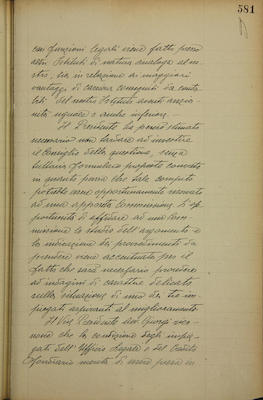 581
con funzioni legali venne fatta presso
altri Istituti di natura analoga al no-
stro, sia in relazione ai maggiori
vantaggi di carriera conseguiti da
del nostro Istituto aventi anzia-
nità uguale o anche inferiore.
Il Presidente ha perciò stimato
necessario non tardare ad investire
il Consiglio della questione, senza
tuttavia formulare proposte concrete
in merito parendo che tale compito
potrebbe essere opportunamente riservato
ad una apposita Commissione. L'op-
portunità di affidare ad una Com-
missione lo studio dell'argomento e
la indicazione dei provvedimenti da
prendere viene accentuata per il
fatto che sarà necessario procedere
ad indagini di carattere delicato
sulla situazione di uno dei tre im-
piegati aspiranti al miglioramento.
Il Vice Presidente
che la condizione degli impie-
gati dell'Ufficio Legale del Credito
Fondiario merita di esser presa in